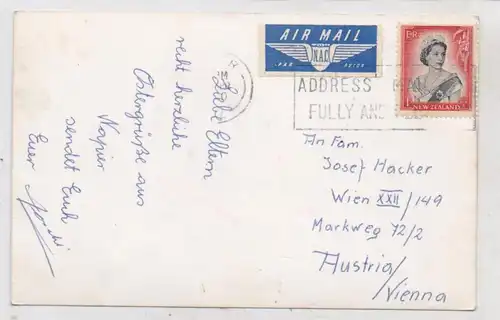 AIR MAIL
N.A.C.
PAR AVION
E R
NEW ZEALAND
ADDRESS M
FULLY AND
Liebe Eltern
recht herzliche
Ostergrüße aus
Napier
sendet Euch
Euer
An Fam.
Josef Hacker
Wien XXII/149
Markweg 72/2
Austria/
/Vienna